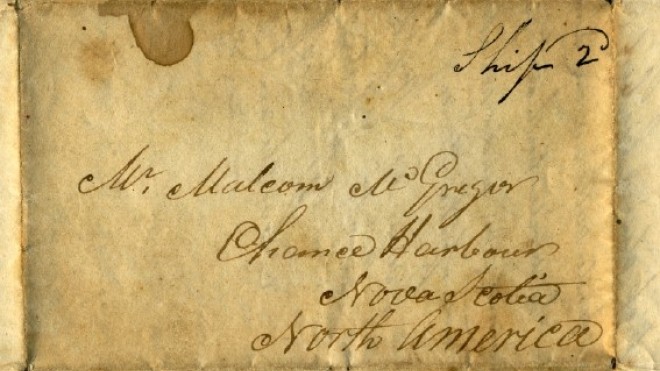 Ship 2d
Mr. Malcom McGregor
Chance Harbour
Nova Scotia
North America